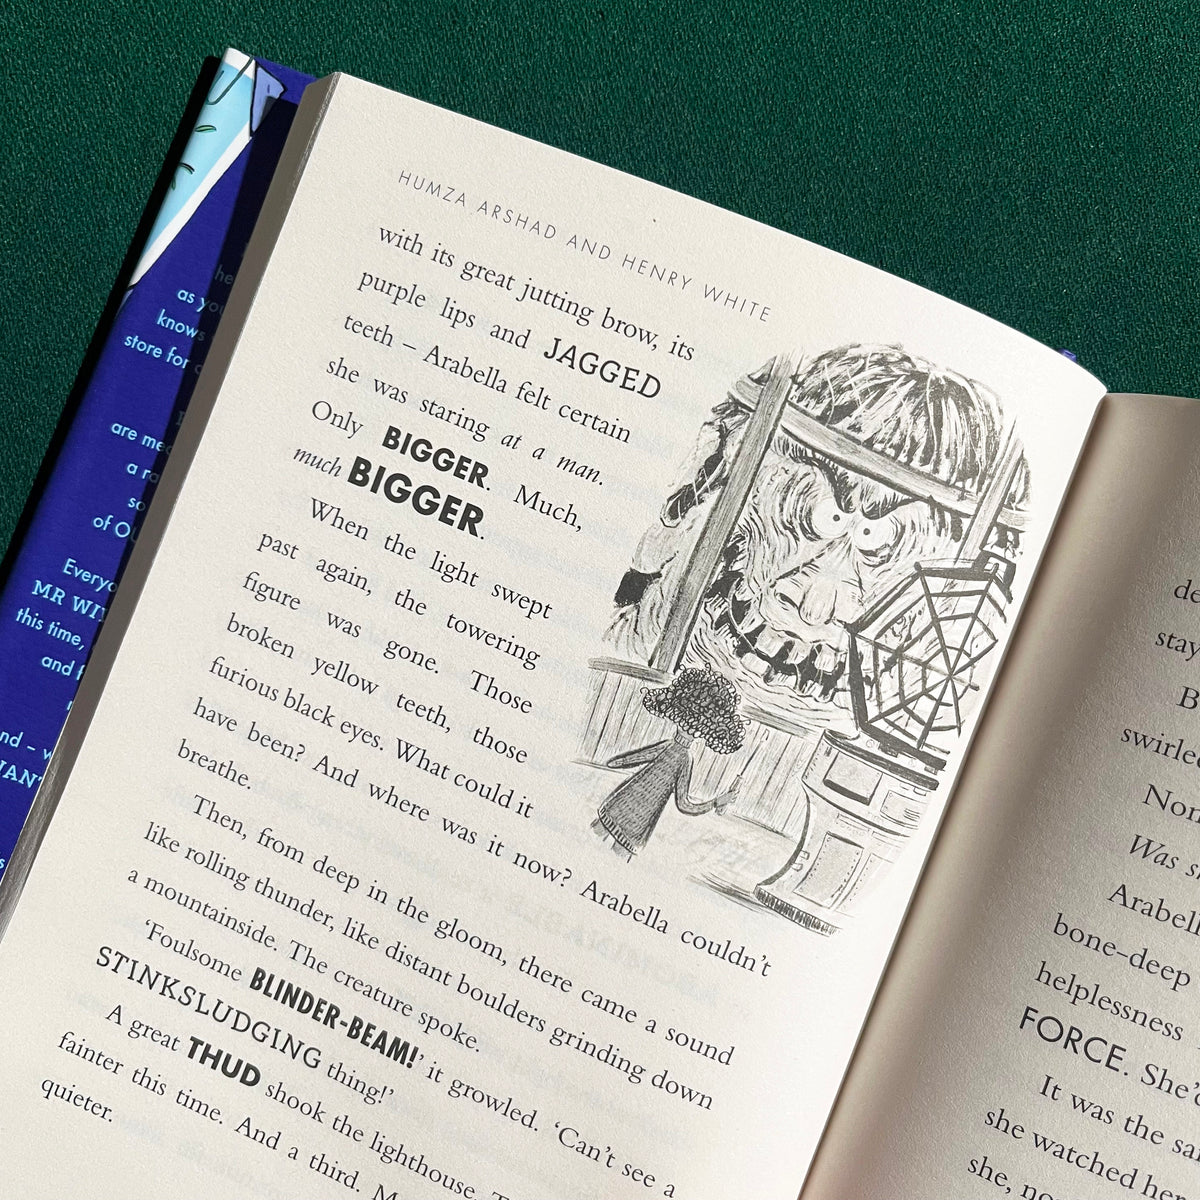 HUMZA ARSHAD AND HENRY WHITE
with its great jutting brow, its
purple lips and JAGGED
teeth – Arabella felt certain
she was staring at a man.
Only BIGGER. Much,
much BIGGER.
When the light swept
past again, the towering
figure was gone. Those
broken yellow teeth, those
furious black eyes. What could it
have been? And where was it now? Arabella couldn't
breathe.
Then, from deep in the gloom, there came a sound
like rolling thunder, like distant boulders grinding down
a mountainside. The creature spoke.
‘Foulsome BLINDER-BEAM!’ it growled. ‘Can't see a
STINKSLUDGING thing!’
A great THUD shook the lighthouse.
fainter this time. And a third.
quieter.
as
knows
store for
are
a
so
of
MR
this time,
and
stay
swirled
Was
bone-deep
helplessness
FORCE. She'd
It was the
she watched her
she,